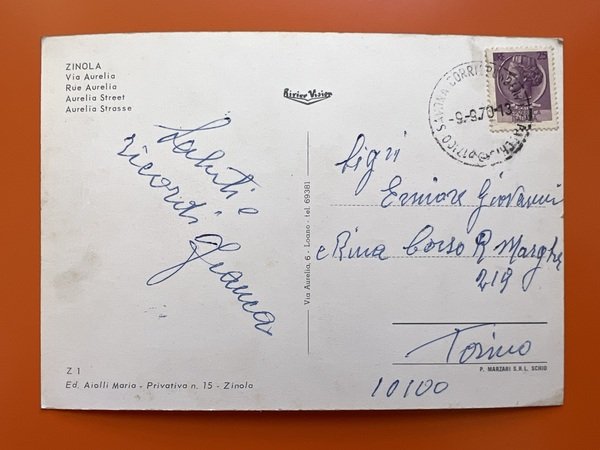 ZINOLA
Via Aurelia
Rue Aurelia
Aurelia Street
Aurelia Strasse
Rivier Vision
25
-9.-9.70-13
Saluti e
ricordi
Franca
Via Aurelia, 6 - Loano - tel. 69381
Sigri
Giovanni
e Rina Corso R Margh
219
Torino
10100
P. MARZARI S.R.L. SCHIO
Z 1
Ed. Aiolli Maria - Privativa n. 15 - Zinola